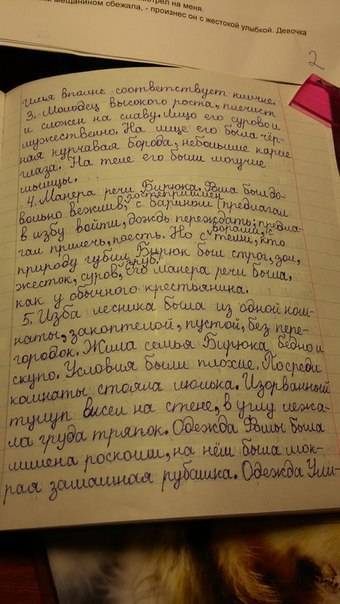 мещанином сбежала, - произнес он с жестокой улыбкой. Девочка
2
вполне соответствует кличке.
3. Молодец высокого роста, плечист
и сложен на славу. Лицо его сурово и
мужественно. На лице его была чёр-
ная курчавая борода, небольшие карие
глаза. На теле его были могучие
мышцы.
4. Манера речи Бирюка. Фома был до-
вольно вежлив, гостеприимен с барином (предлагал
в избу войти, дождь переждать; предла-
гал прилечь, поесть. Но с ворами, с теми, кто
природу губил, Бирюк был строг, зол,
жесток, суров, груб. Его манера речи была,
как у обычного крестьянина.
5. Изба лесника была из одной ком-
наты, закоптелой, пустой, без пере-
городок. Жила семья Бирюка бедно и
скупо. Условия были плохие. Посреди
комнаты стояла люлька. Изорванный
тулуп висел на стене, в углу лежа-
ла груда тряпок. Одежда Фомы была
лишена роскоши, на нём была мок-
рая замашная рубашка. Одежда Ули-